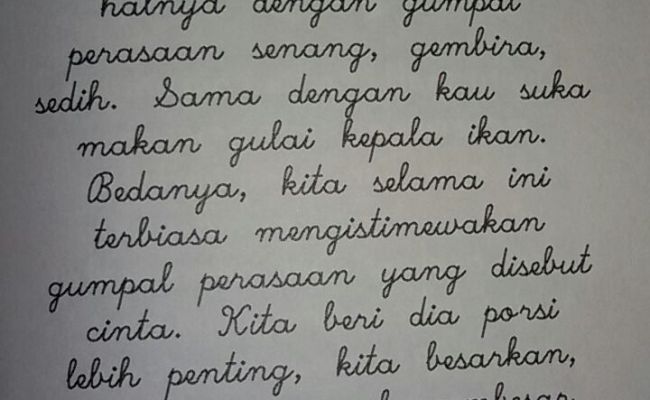 halnya dengan gumpal
perasaan senang, gembira,
sedih. Sama dengan kau suka
makan gulai kepala ikan.
Bedanya, kita selama ini
terbiasa mengistimewakan
gumpal perasaan yang disebut
cinta. Kita beri dia porsi
lebih penting, kita besarkan,